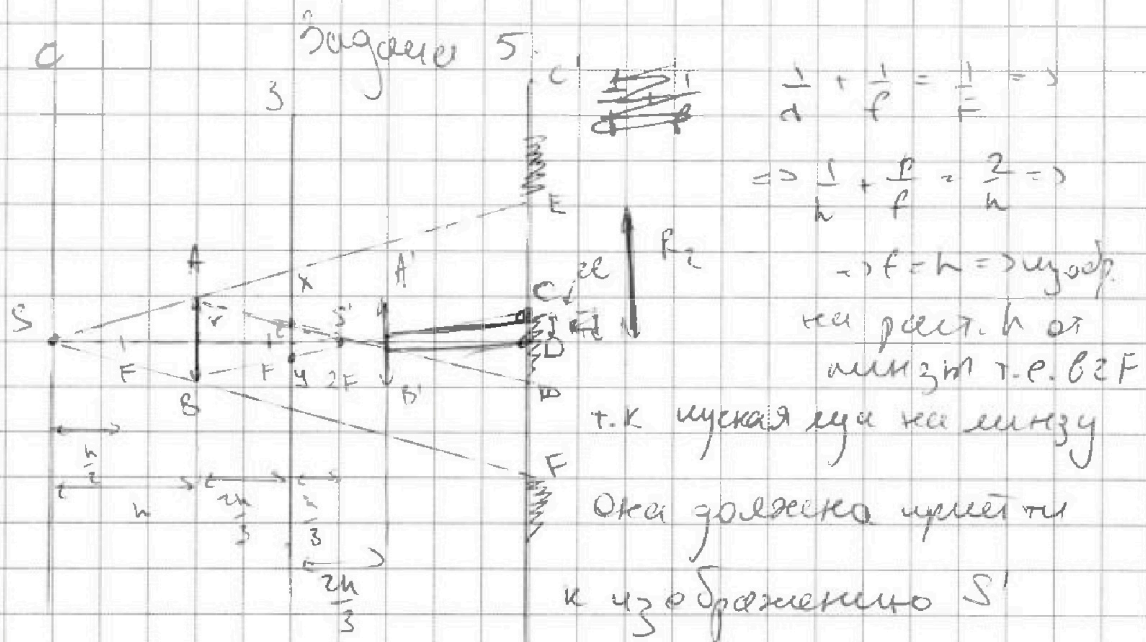 Задача 5
1/d + 1/f = 1/F =>
=> 1/h + 1/f = 2/h =>
=> f = h => изобр.
на расст. h от
линзы т.е. в 2F
т.к пуская луч на линзу
она должна прийти
к изображению S'
C'
3
E
A
X
A'
R₂
C
S
S'
D
F
F
y
2F
B
B'
F
h/2
h
2h/3
h/3
2h/3